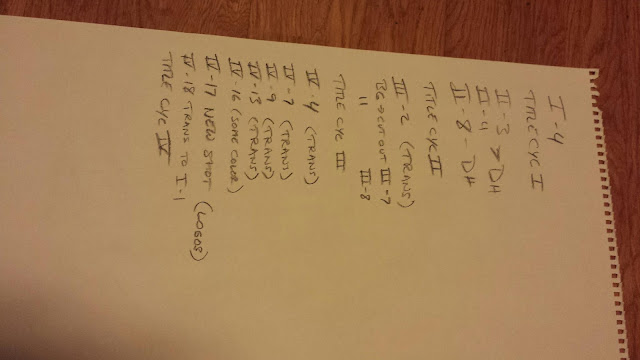 I-4
TITLE CYC I
II-3 > DH
II-4
II-8 - DH
TITLE CYC II
III-2 (TRANS)
BG → CUT OUT III-7
11 III-8
TITLE CYC III
IV-4 (TRANS)
IV-7 (TRANS)
IV-9 (TRANS)
IV-13 (TRANS)
IV-16 (SOME COLOR)
IV-17 NEW SHOT (LOGOS)
IV-18 TRANS TO I-1
TITLE CYC IV